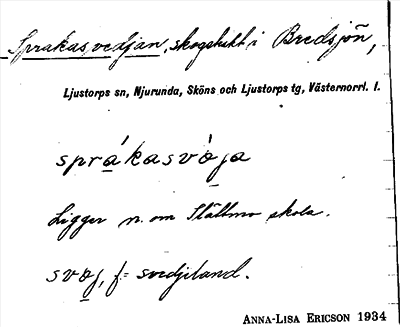 Sprakasvedjan, skogstrakt i Bredsjön,
Ljustorps sn, Njurunda, Sköns och Ljustorps tg, Västernorrl. l.
sprákasvò̱ja
Ligger n. om Ställmo skola.
svo̱j, f = svedjeland.
ANNA-LISA ERICSON 1934